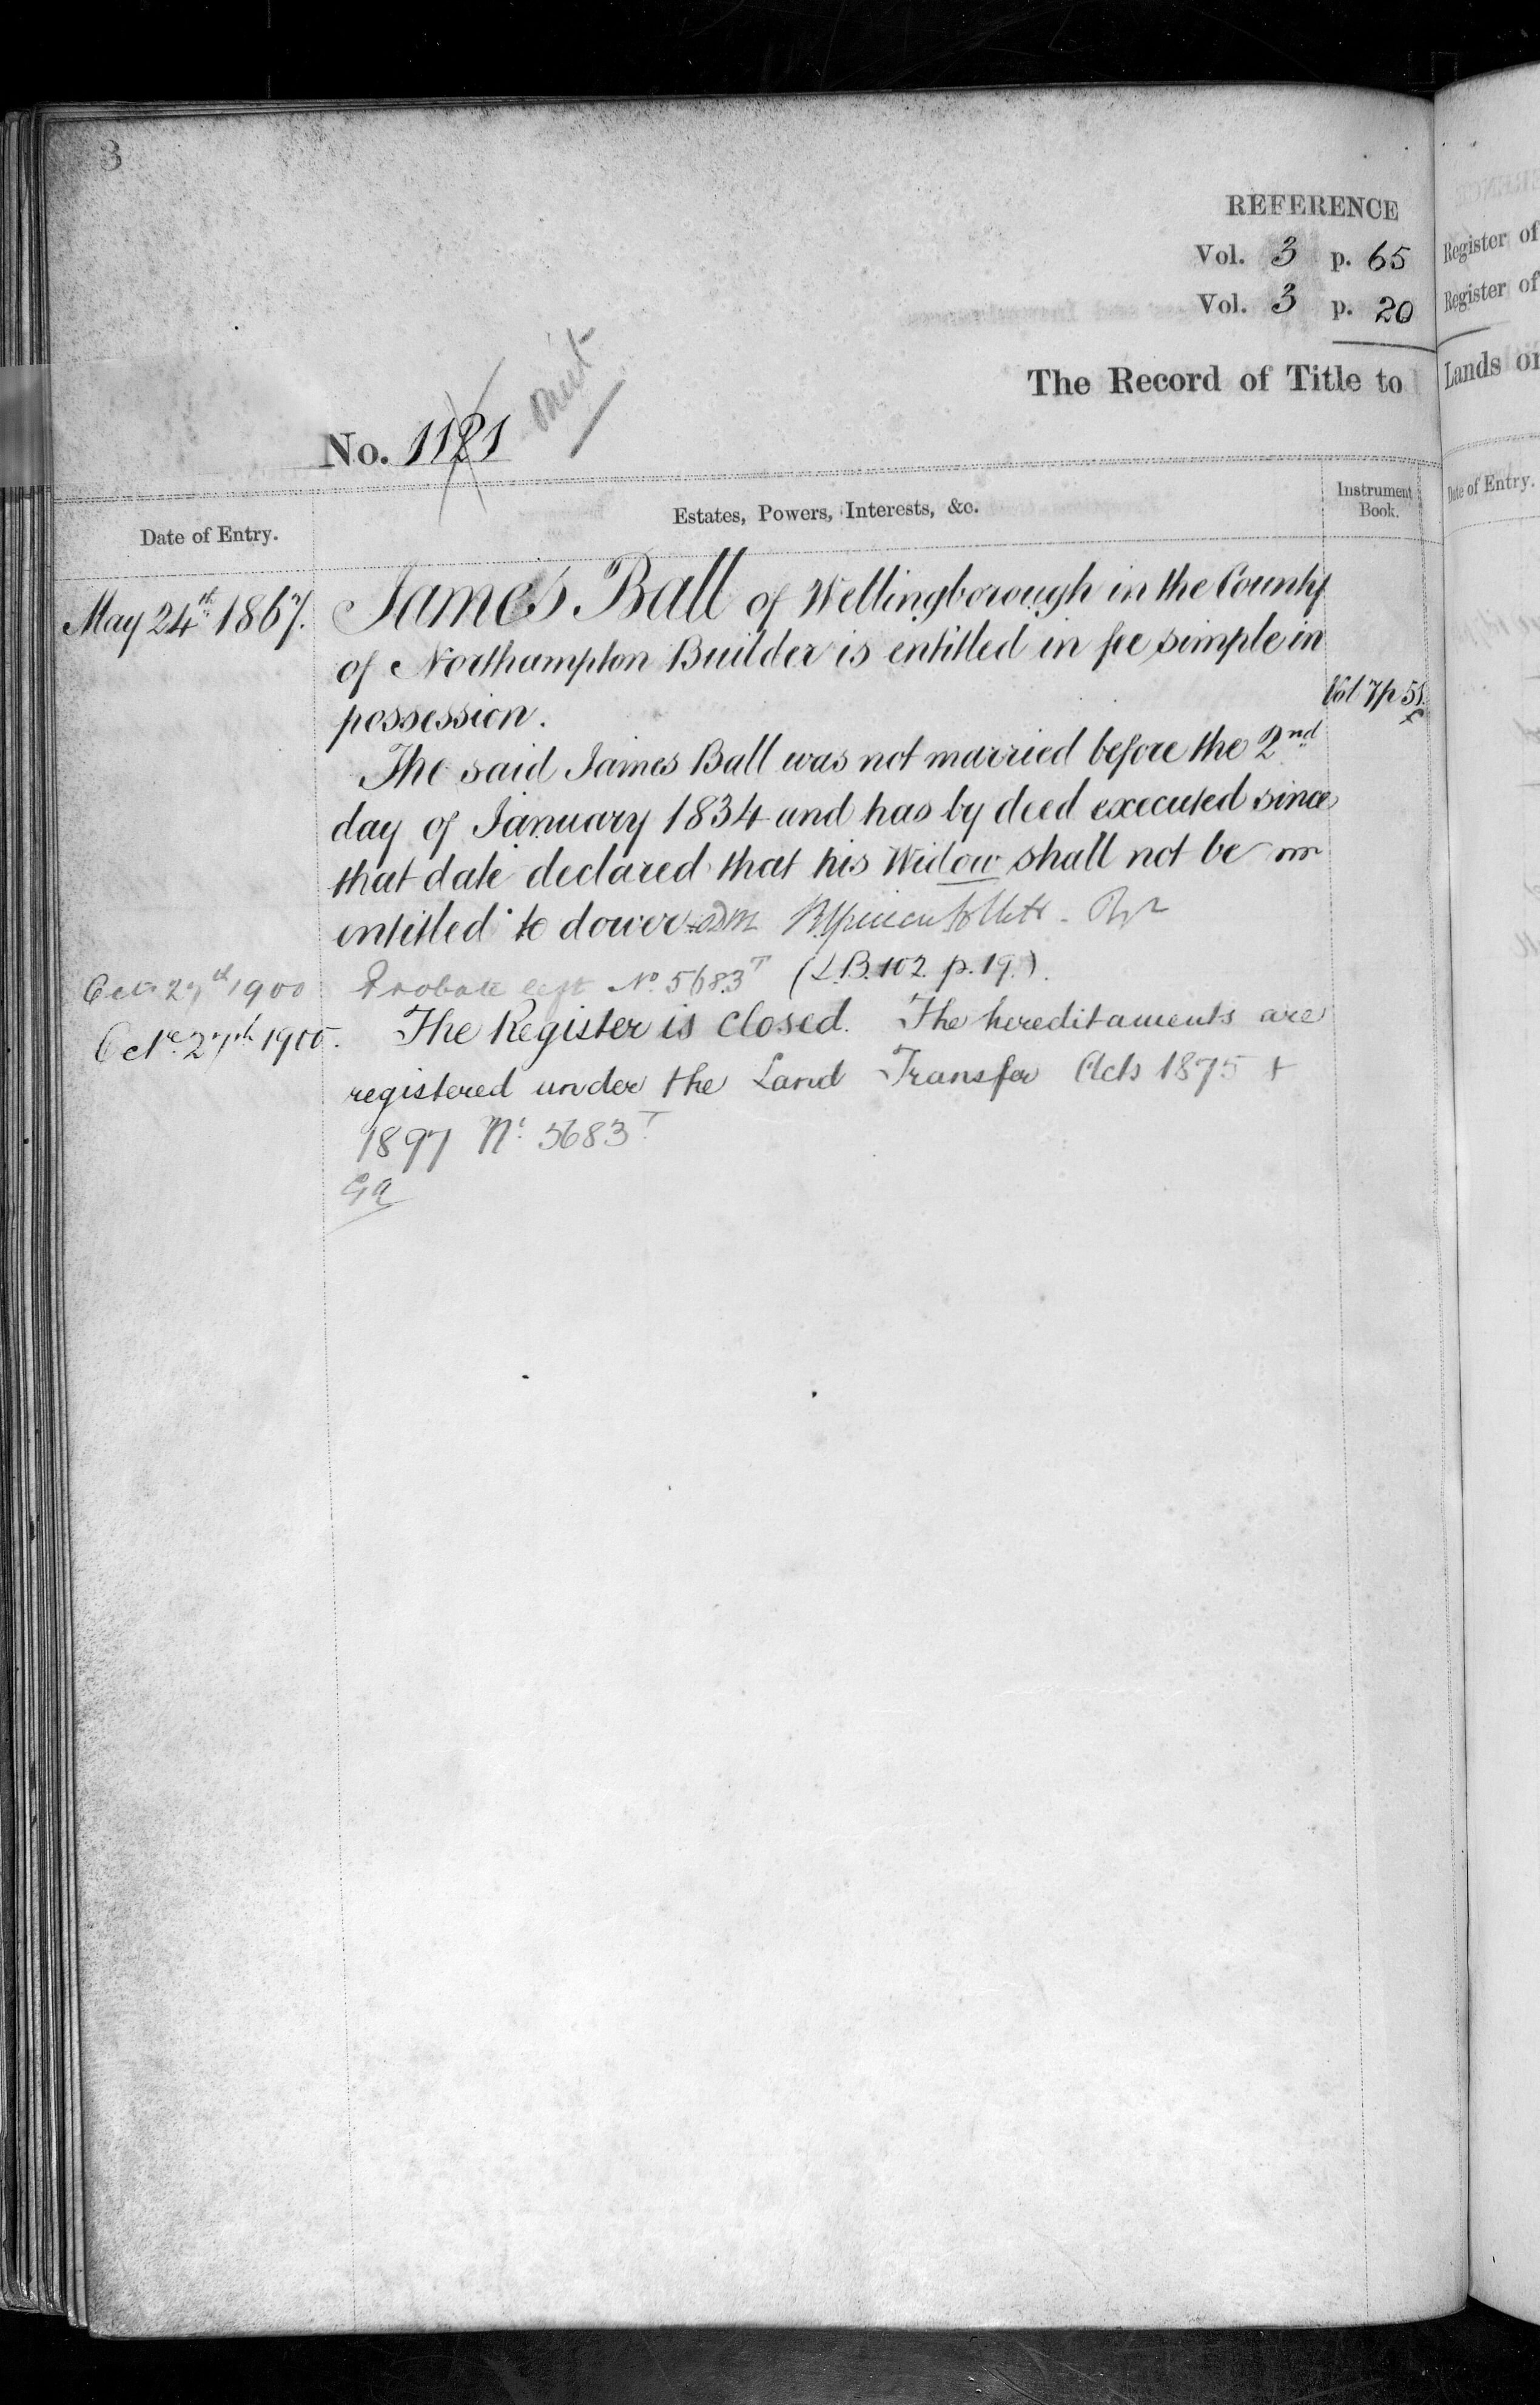 3
REFERENCE
Vol. 3 p. 65
Vol. 3 p. 20
The Record of Title to
No. 1121
Date of Entry.
Estates, Powers, Interests, &c.
Instrument Book.
May 24th 1867.
James Ball of Wellingborough in the County
of Northampton Builder is entitled in fee simple in
possession.
Vol 7 p 51.
The said James Ball was not married before the 2nd
day of January 1834 and has by deed executed since
that date declared that his Widow shall not be
entitled to dower
Octr 27th 1900
Probate left No. 5683T (L.B. 102. p. 19.).
Octr 27th 1900.
The Register is closed. The hereditaments are
registered under the Land Transfer Acts 1875 +
1897 No. 5683T.
GA
Register of
Register of
Lands or
Date of Entry.